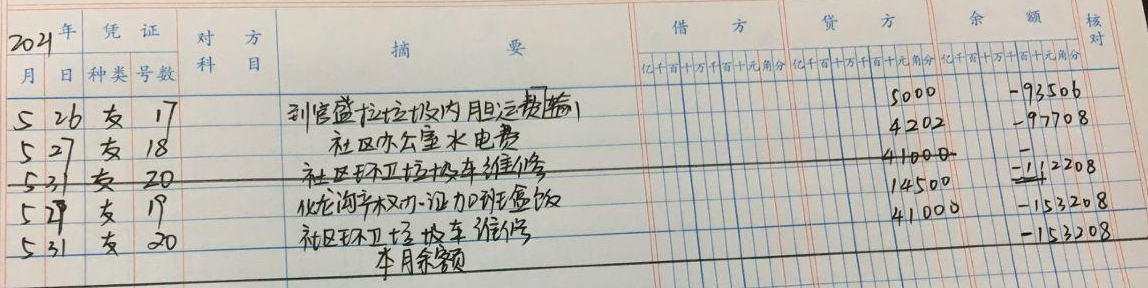 2021年 凭证 对方科目 摘要 借方 贷方 余额 核对
月 日 种类 号数 亿千百十万千百十元角分 亿千百十万千百十元角分 亿千百十万千百十元角分
5 26 支 17 到官盛拉垃圾内胆运费 5000 -93506
5 27 支 18 社区办公室水电费 4202 -97708
5 31 支 20 社区环卫垃圾车维修 41000 -
5 29 支 19 化龙沟产权办证加班盒饭 14500 -112208
5 31 支 20 社区环卫垃圾车维修 41000 -153208
本月余额 -153208